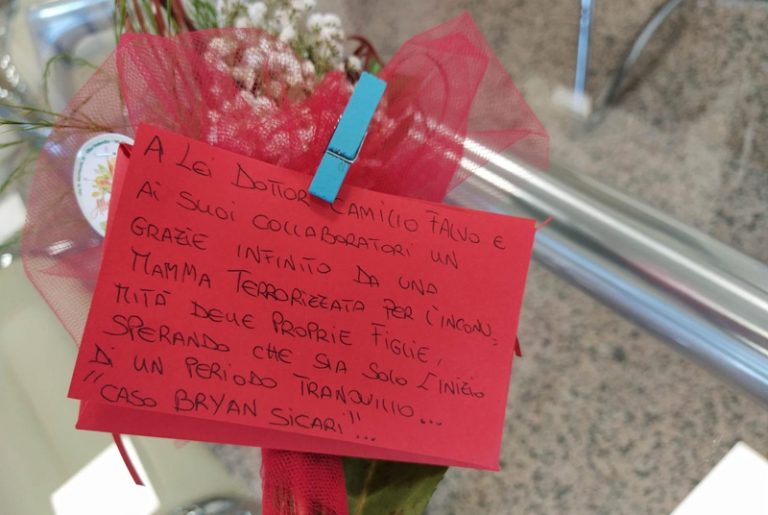 A LEI DOTTOR CAMILLO FALVO E
AI SUOI COLLABORATORI UN
GRAZIE INFINITO DA UNA
MAMMA TERRORIZZATA PER L'INCOLU=
MITÀ DELLE PROPRIE FIGLIE,
SPERANDO CHE SIA SOLO L'INIZIO
DI UN PERIODO TRANQUILLO...
"CASO BRYAN SICARI"...